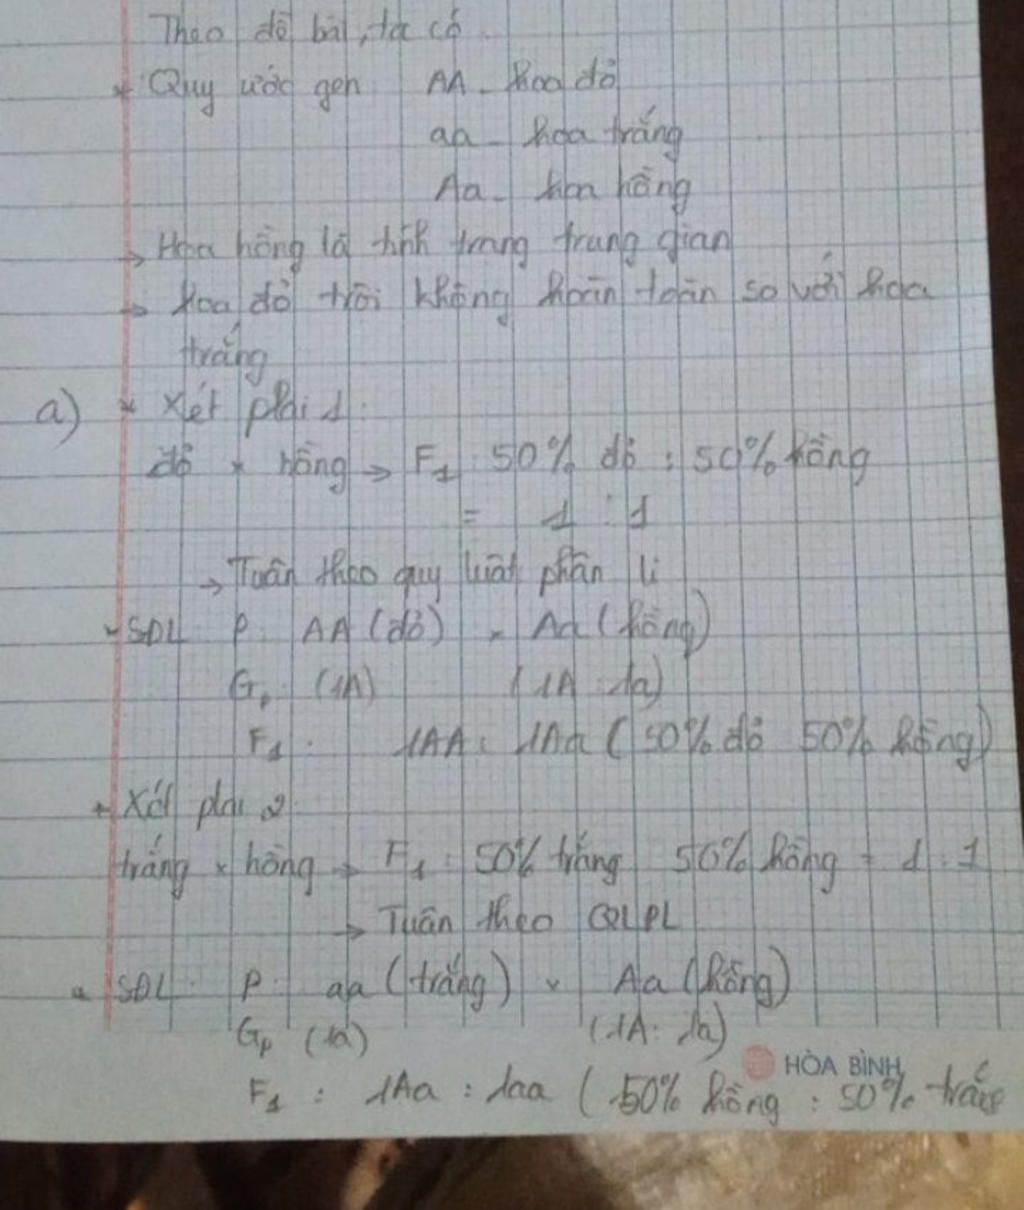 Theo đề bài, ta có
* Quy ước gen AA - hoa đỏ
aa - hoa trắng
Aa - hoa hồng
→ Hoa hồng là tính trạng trung gian
→ hoa đỏ trội không hoàn toàn so với hoa
trắng
a) * Xét phai 1:
đỏ × hồng → F1: 50% đỏ : 50% hồng
= 1 : 1
→ Tuân theo quy luật phân li
- SĐL P: AA (đỏ) × Aa (hồng)
Gp: (1A) (1A : 1a)
F1: 1AA : 1Aa (50% đỏ 50% hồng)
* Xét phai 2:
trắng × hồng → F1: 50% trắng 50% hồng = 1 : 1
→ Tuân theo QLPL
- SĐL: P: aa (trắng) × Aa (hồng)
Gp (1a) (1A : 1a)
HÒA BÌNH
F1 : 1Aa : 1aa (50% hồng : 50% trắng